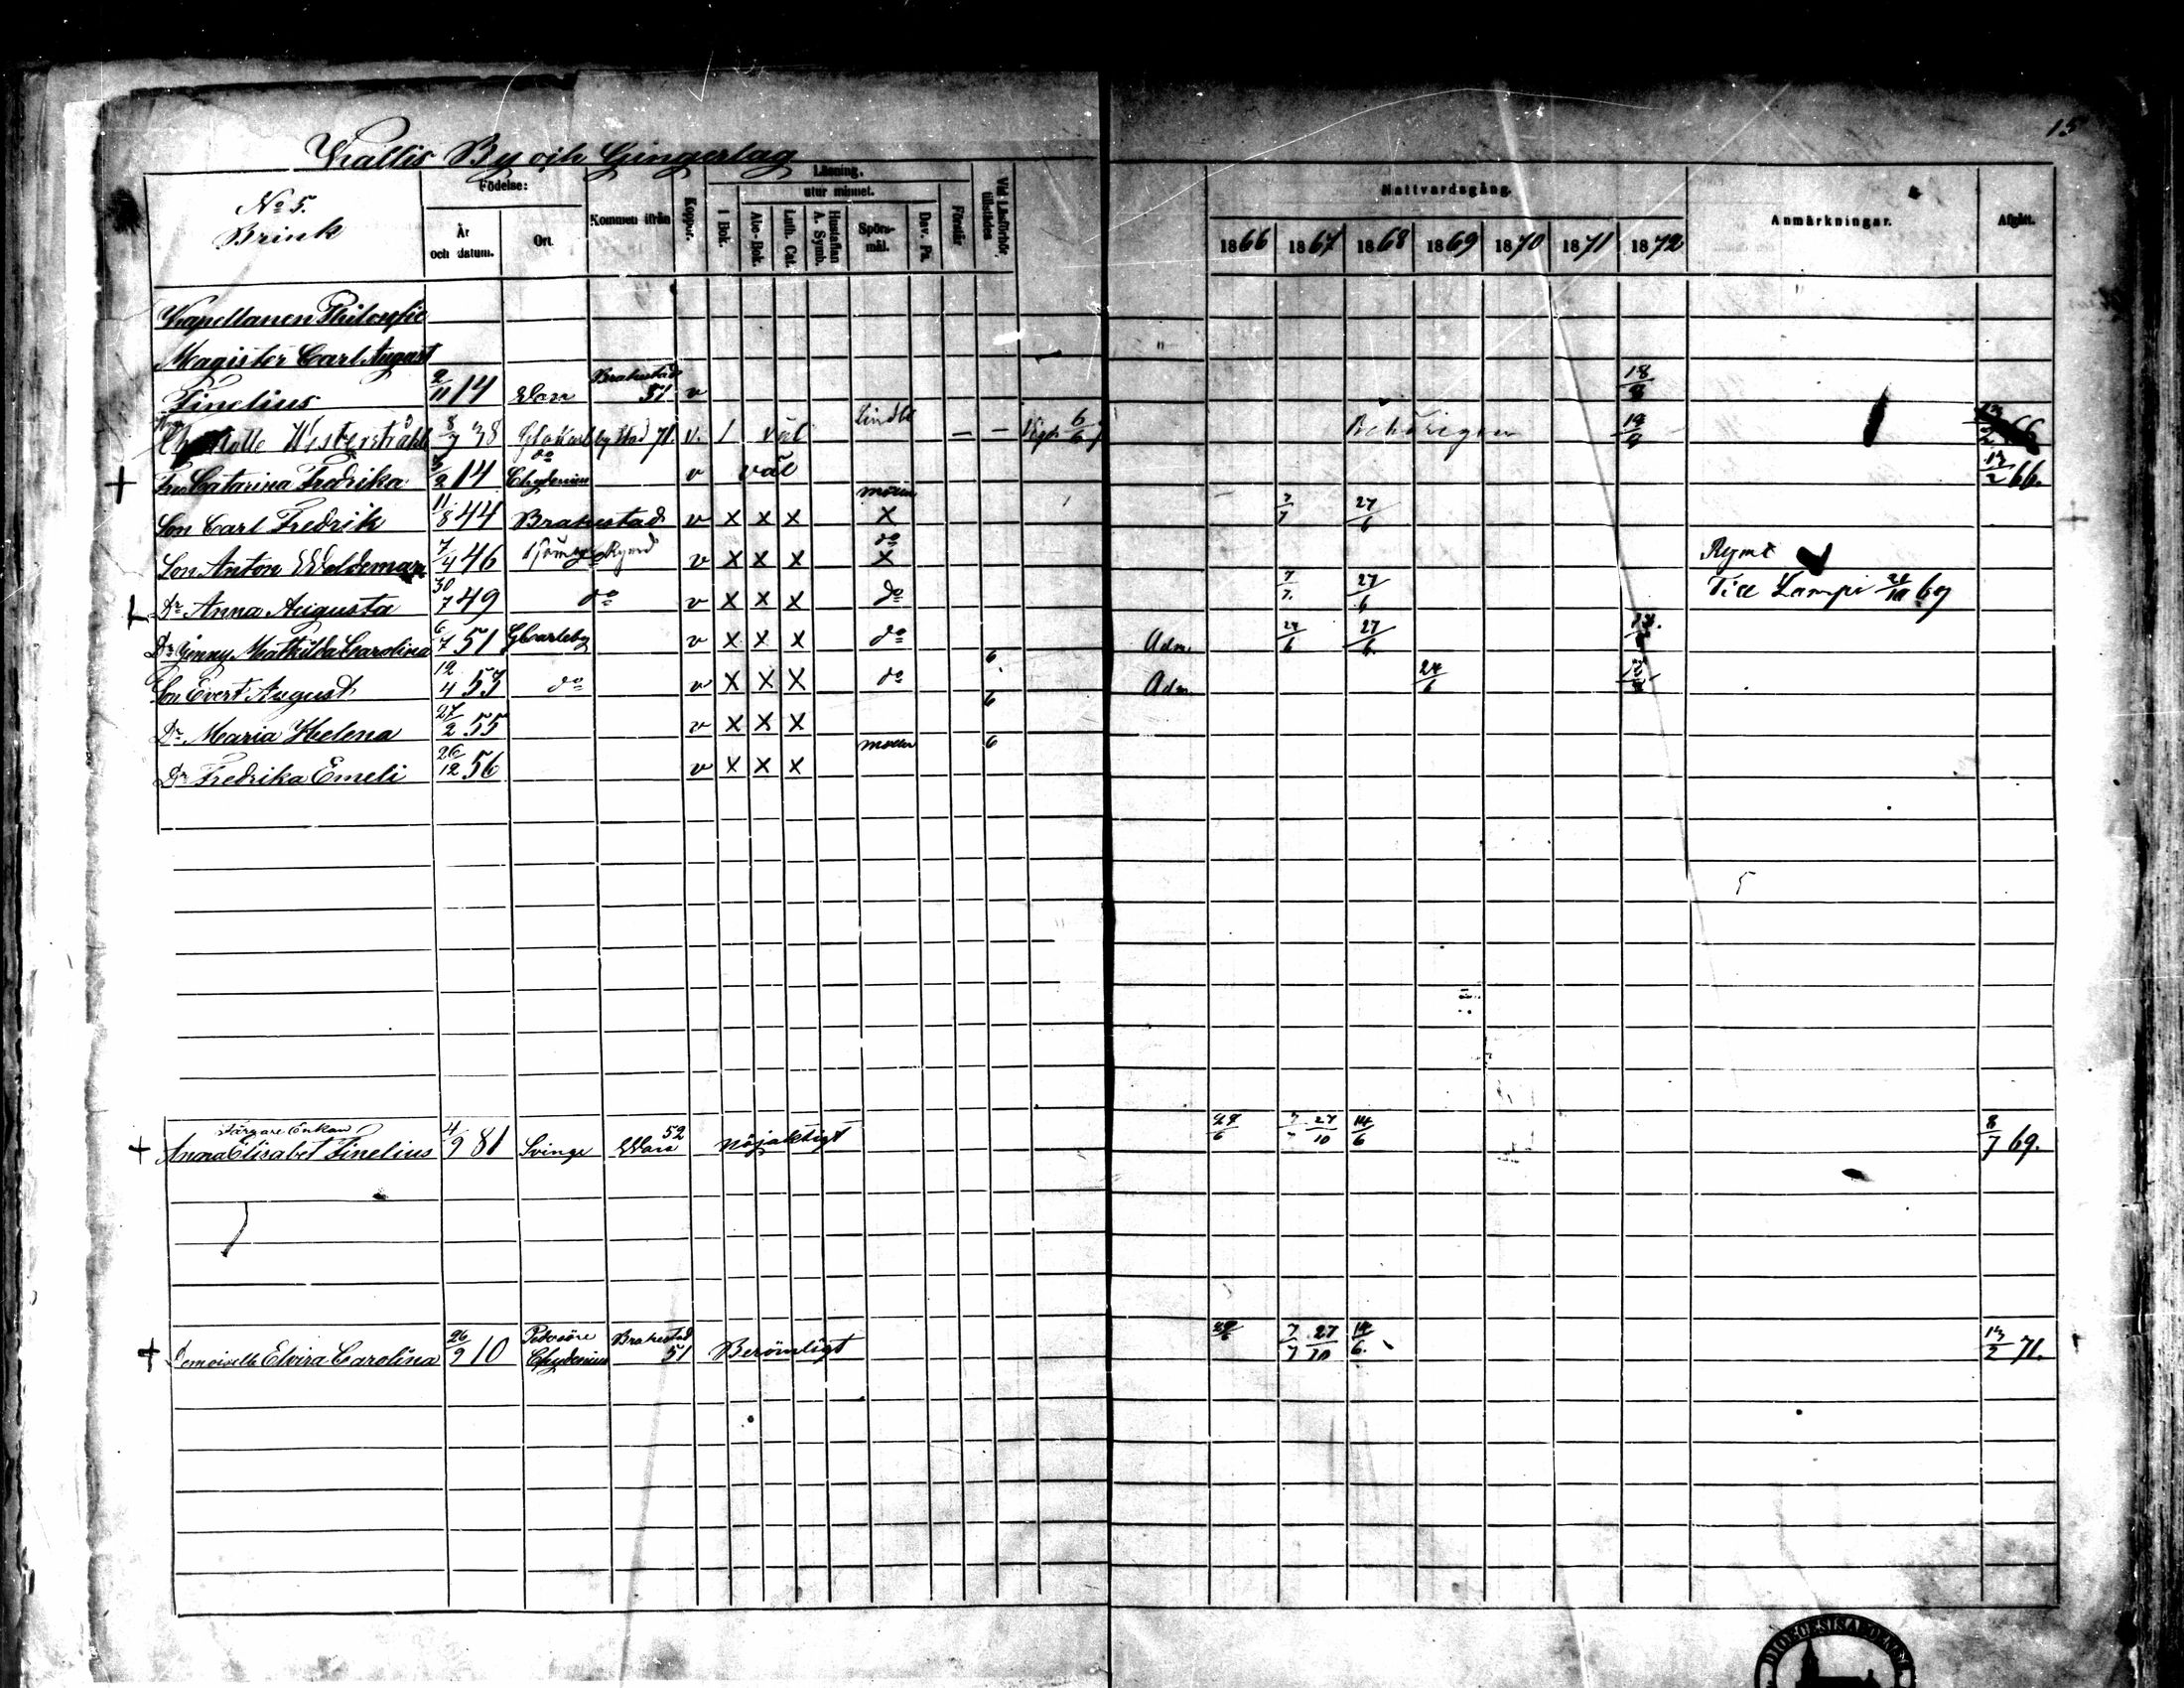 15
Kallis By och Gingerlag
No 5.
Brink
Födelse:
År och datum.
Ort.
Kommen ifrån
Koppor.
Läsning.
utur minnet.
I Bok.
Abc-Bok.
Luth. Cat.
Hustaflan A. Symb.
Spörs-mål.
Dav. Ps.
Förstår
Vid Läsförhör tillstädes
Nattvardsgång.
1866 1867 1868 1869 1870 1871 1872
Anmärkningar.
Afgått.
Kapellanen Philosofie
Magister Carl August
Finelius 2/11 14 Wasa Brahestad 51 v 18/8
Charlotte Westerstråhle 8/7 38 Gla Karleby stad 71. v. 1 väl Lindbl — — Vigh 6/6 7 Behörigen 18/8
+ Fru Catarina Fredrika 3/2 14 do Chydenius v väl 17/2 66.
Son Carl Fredrik 11/8 44 Brahestad v x x x x 7/7 27/6
Son Anton Woldemar 7/4 46 v x x x do x Rymt
Dr Anna Augusta 30/7 49 do v x x x do 7/7. 27/6 Till Lampi 21/10 69
Dr Jenny Mathilda Carolina 6/7 51 GCarleby v x x x do Adm. 27/6 27/6
Son Evert August 12/4 53 do v x x x do 6 Adm. 27/6
Dr Maria Helena 27/2 55 v x x x 6
Dr Fredrika Emeli 26/12 56 v x x x 6
Färgare Enkan
+ Anna Elisabet Finelius 4/9 81 Svinge Wasa 52 nöjaktigt 27/6 27/10 14/6 8/7 69.
+ Demoiselle Elvira Carolina 26/9 10 Pedersöre Chydenius Brahestad 51 Berömligt 7/7 27/10 14/6. 13/2 71.